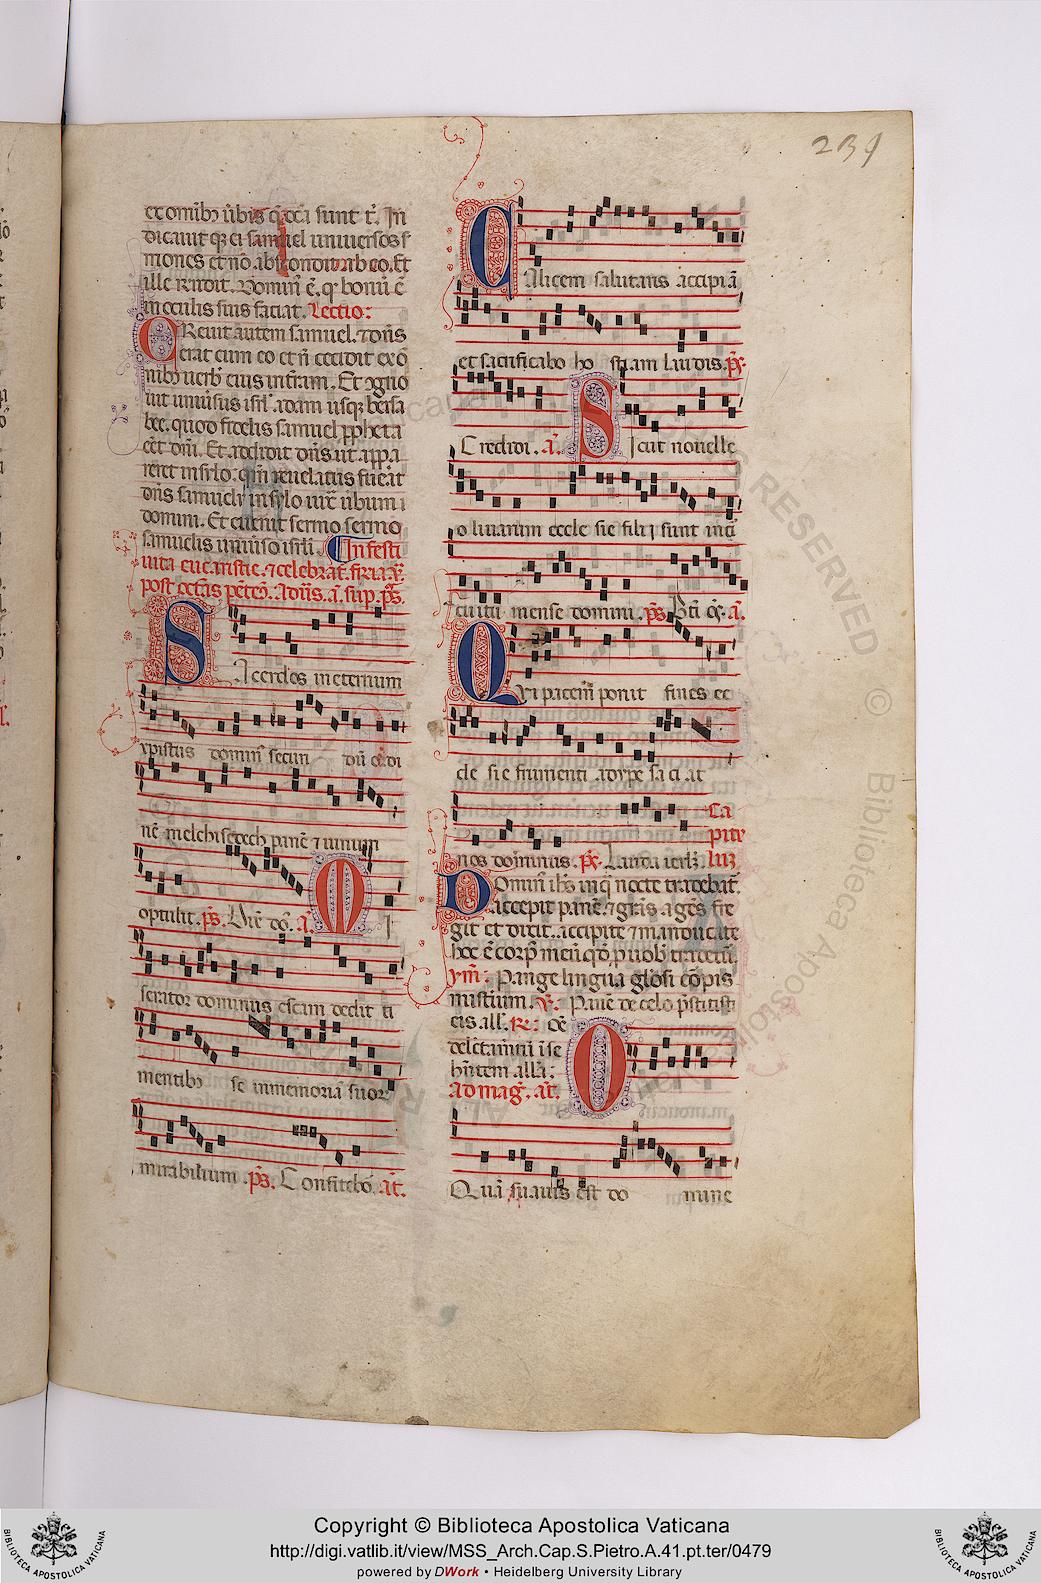 239
et omnib; ubis q̄ locuta sunt t̄. In
dicauit q̄; ei samuel uniuersos s̄
mones et nō abscondit ab eo. Et
ille rn̄dit. Domin̄ ē. q̄ bonū ē
in oculis suis faciat. Lectio:
Creuit autem samuel. ⁊ dn̄s
erat cum eo et n̄ cecidit ex ō
nib; uerb̄ eius in terram. Et ɔgno
uit uniuersus isrl̄. a dam usq; bersa
bee. quod fidelis samuel ꝓpheta
eēt dn̄i. Et addidit dn̄s ut appa
reret in sylo. qm̄ reuelatus fuēat
dn̄s samueli in sylo iux̄ ūbum
domini. Et euenit sermo
samuelis uniūso isrl̄i. In festi
uita eucaristie. ⁊ celebrat̄. feria .v.
post octaūs pēteco. Ad uūs. ā. sup. ps̄.
Sacerdos in eternum
xpistus dominꝰ secun dū ordi
nē melchisedech panē ⁊ uinum
optulit. ps̄. Dix̄. dn̄s. ā. Mi
serator dominus escam dedit ti
mentib; se in memoriā suor̄
mirabilium. ps̄. Confitebor̄. āt.
Calicem salutaris accipiā
et sacrificabo ho stiam laudis. ps̄.
Credidi. ā. Sicut nouelle
oliuarum ecclesie filij sint in cir
cuitu mense domini. ps̄. Bt̄i oēs. ā.
Qui pacem ponit fines ec
clesie frumenti adype saciat
nos dominus. ps̄. Lauda ierl̄m.
Capitulum
Dominꝰ ihs̄ in q̄ nocte tradebat̄.
accepit panē. ⁊ grās agēs fre
git et dixit. accipite ⁊ manducate
hoc ē corpꝰ meū qd̄ ꝓ uob̄ tradetū.
ymꝰ. Pange lingua glōsi corp̄is
misterium. v̄. Panē de celo pr̄stitisti
eis all̄. R. Oē
delectam̄tū ī se
hn̄tem all̄a:
Ad maḡ. āt.
O
Quā suauis est do mine
Copyright © Biblioteca Apostolica Vaticana
http://digi.vatlib.it/view/MSS_Arch.Cap.S.Pietro.A.41.pt.ter/0479
powered by DWork • Heidelberg University Library